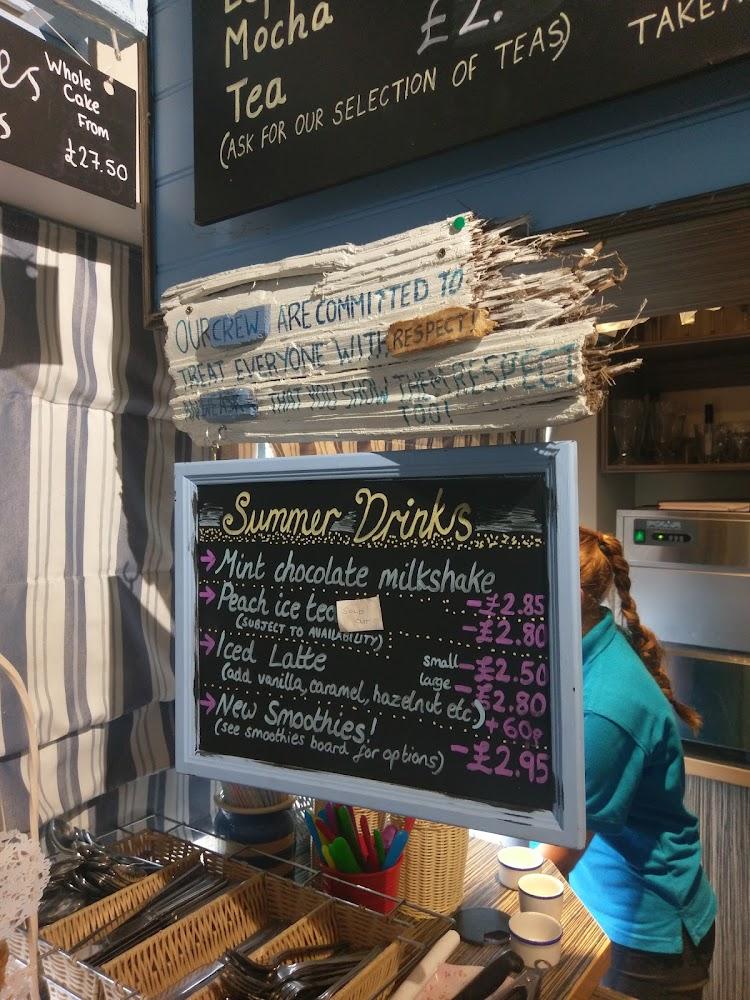 Mocha £2.
Tea
(ASK FOR OUR SELECTION OF TEAS)
Whole
Cake
From
£27.50
OUR CREW ARE COMMITTED TO
TREAT EVERYONE WITH RESPECT!
THAT YOU SHOW THEM RESPECT
TOO!
Summer Drinks
→ Mint chocolate milkshake
-£2.85
→ Peach ice tea SOLD OUT -£2.80
(SUBJECT TO AVAILABILITY)
→ Iced Latte small -£2.50
large -£2.80
(add vanilla, caramel, hazelnut etc) +60p
→ New Smoothies!
(see smoothies board for options) -£2.95
POLAR